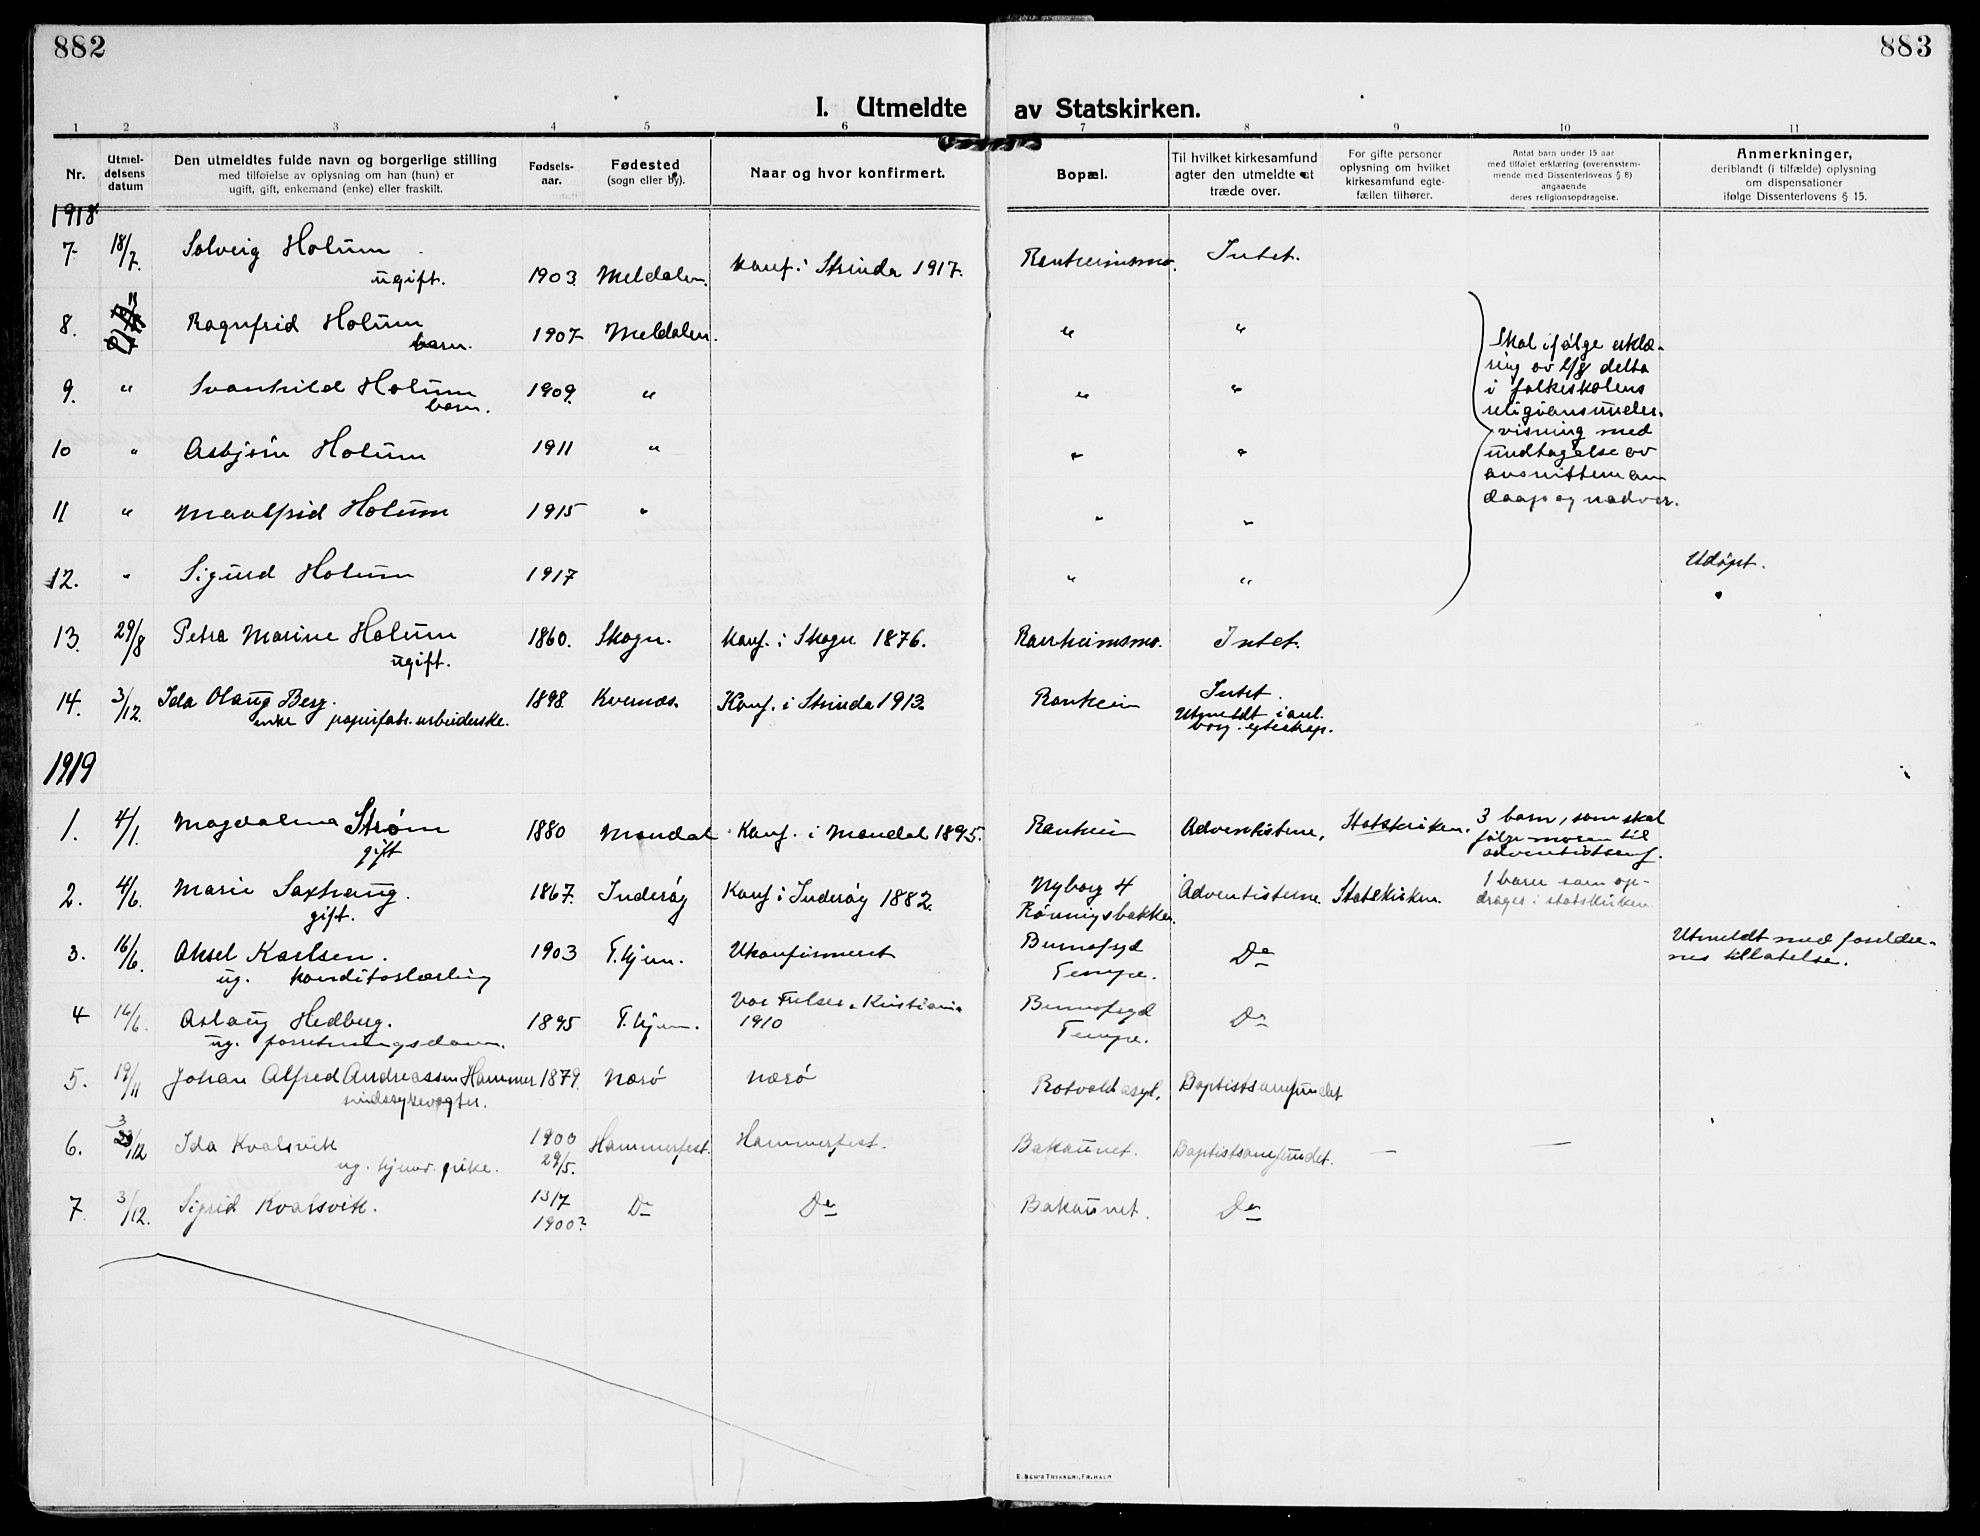 882
883
I. Utmeldte av Statskirken.
1 2 3 4 5 6 7 8 9 10 11
Nr.
Utmel-
delsens
datum
Den utmeldtes fulde navn og borgerlige stilling
med tilføielse av oplysning om han (hun) er
ugift, gift, enkemand (enke) eller fraskilt.
Fødsels-
aar.
Fødested
(sogn eller by).
Naar og hvor konfirmert.
Bopæl.
Til hvilket kirkesamfund
agter den utmeldte at
træde over.
For gifte personer
oplysning om hvilket
kirkesamfund egte-
fællen tilhører.
Antal barn under 15 aar
med tilføiet erklæring (overensstem-
mende med Dissenterlovens § 8)
angaaende
deres religionsopdragelse.
Anmerkninger,
deriblandt (i tilfælde) oplysning
om dispensationer
ifølge Dissenterlovens § 15.
1918
7. 18/7. Solveig Holum 1903. Meldalen. Konf. i Strinda 1917. Ranheimsmo. Intet.
ugift.
8. Ragnfrid Holum 1907. Meldalen. " "
barn.
9. " Svanhild Holum 1909. " " "
barn.
10 " Asbjørn Holum 1911 " " "
11 " Maalfrid Holum 1915 " " "
12. " Sigurd Holum 1917 " " Udøpt.
Skal ifølge erklæ-
ring av 2/8 delta
i folkeskolens
religionsunder-
visning med
undtagelse av
avsnittene om
daap og nadver.
13. 29/8 Petra Marine Holum 1860. Skogn. Konf. i Skogn 1876. Ranheimsmo. Intet.
ugift.
14. 3/12. Ida Olaug Berg. 1898. Kvernæs. Konf. i Strinda 1913. Ranheim Intet.
enke papirfabr. arbeiderske.
Utmeldt i anl.
borg. egteskap.
1919
1. 4/1. Magdalena Strøm 1880 Mandal Konf. i Mandal 1895. Ranheim Adventistene. Statskirken. 3 barn, som skal
gift
følge moren til
adventistsamf.
2. 4/6. Marie Saxhaug. 1867. Inderøy Konf i Inderøy 1882. Nyborg 4 Adventisterne Statskirken. 1 barn som op-
gift. Rønningsbakken. drages i statskirken
3. 16/6. Aksel Karlsen. 1903 T.hjem. Ukonfirmert Do Utmeldt med foreldre-
ug. konditorlærling Tempe. nes tillatelse.
4 16/6. Aslaug Hedberg. 1895 T.hjem. Vor Frelser. Kristiania Do
ug. forretningsdame. 1910 Tempe.
5. 19/11 Johan Alfred Andreassen Hammer 1879. Nærø Nærø Rotvoldasyl. Baptistsamfundet
sindssykevogter.
6. 3/12 Ida Kvalsvik 1900 Hammerfest. Hammerfest. Bakaunet. Baptistsamfundet. — —
ug. tjener. pike. 29/5.
7. 3/12. Sigrid Kvalsvik. 13/7 Do Do Bakaunet. Do
1900?
E. SEM'S TRYKKERI, FR.HALD